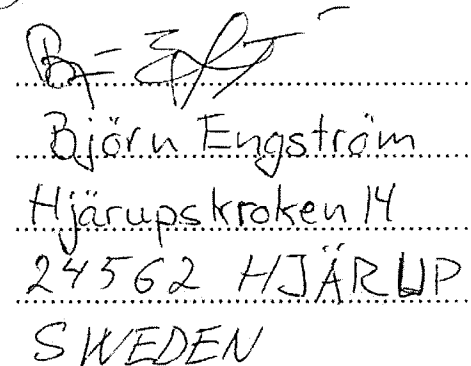 Björn Engström
Hjärupskroken 14
24562 HJÄRUP
SWEDEN